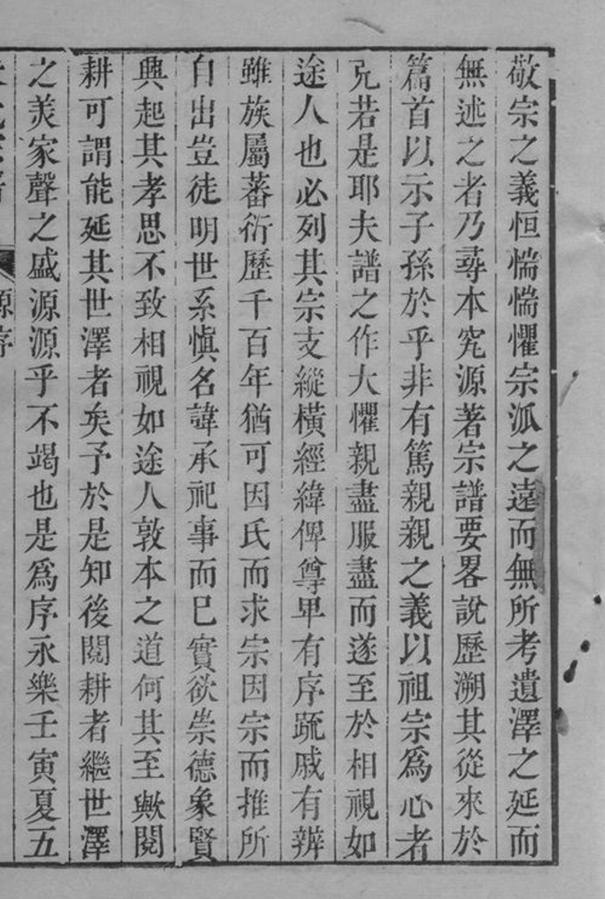 敬宗之義恒惴惴懼宗泒之遠而無所考遺澤之延而
無述之者乃尋本究源著宗譜要畧說歷溯其從來於
篇首以示子孫於乎非有篤親親之義以祖宗爲心者
克若是耶夫譜之作大懼親盡服盡而遂至於相視如
途人也必列其宗支縱橫經緯俾尊卑有序疏戚有辨
雖族屬蕃衍歷千百年猶可因氏而求宗因宗而推所
自出豈徒明世系愼名諱承祀事而已實欲崇德象賢
興起其孝思不致相視如途人敦本之道何其至歟閱
耕可謂能延其世澤者矣予於是知後閱耕者繼世澤
之美家聲之盛源源乎不竭也是爲序永樂壬寅夏五
源序